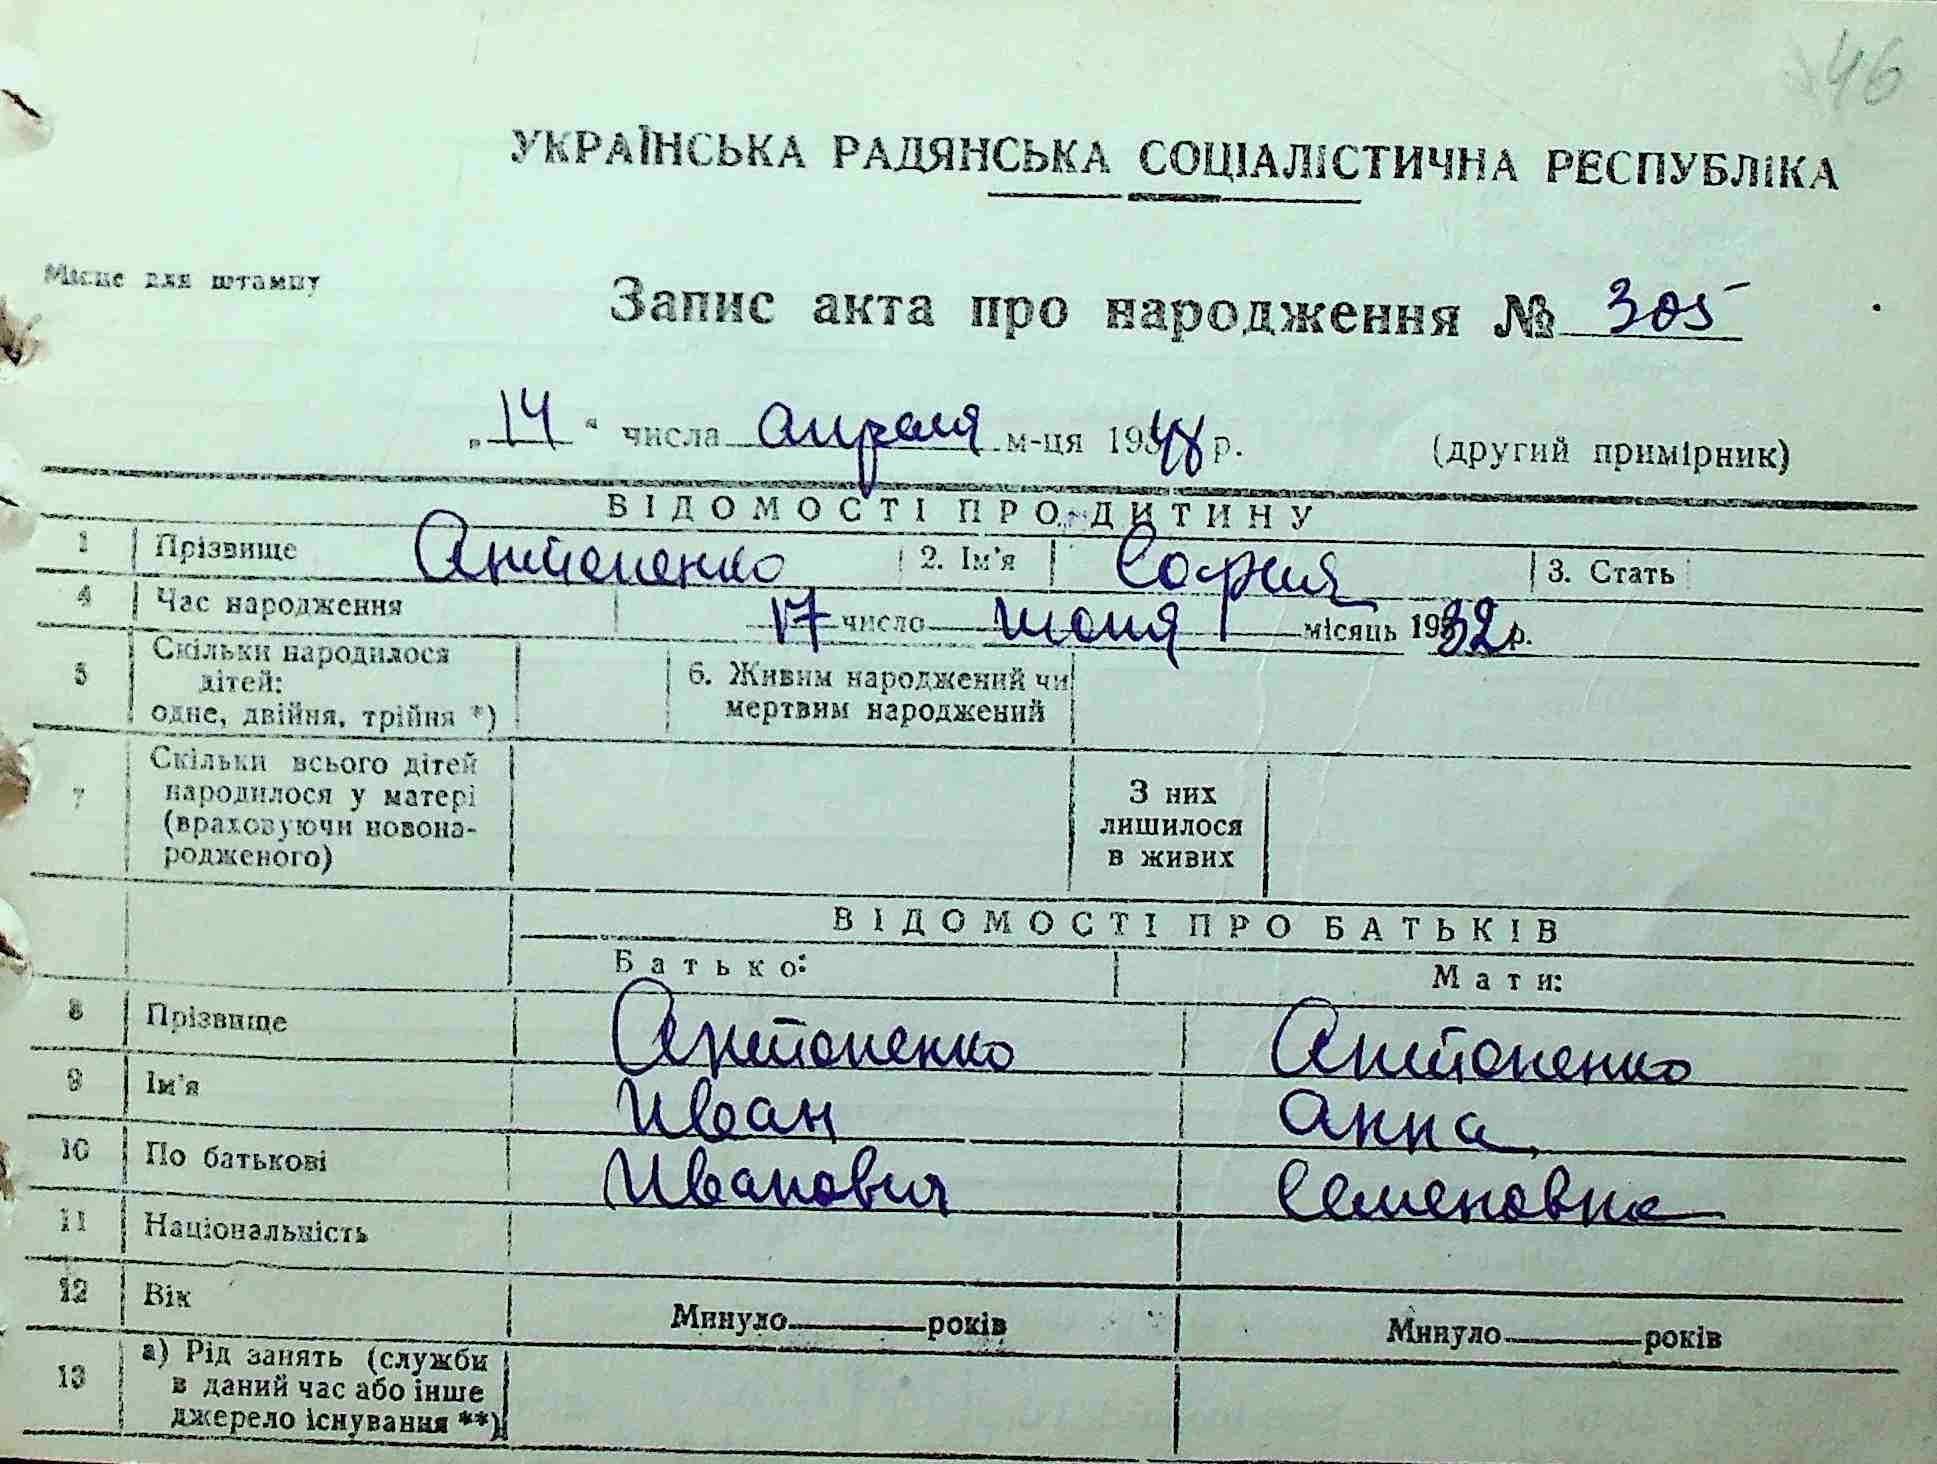 46
УКРАЇНСЬКА РАДЯНСЬКА СОЦІАЛІСТИЧНА РЕСПУБЛІКА
Місце для штампу
Запис акта про народження № 305
„14“ числа апреля м-ця 1948 р. (другий примірник)
ВІДОМОСТІ ПРО ДИТИНУ
1 Прізвище Антоненко 2. Ім'я София 3. Стать
4 Час народження 17 число июня місяць 1932 р.
5 Скільки народилося дітей: одне, двійня, трійня *) 6. Живим народжений чи мертвим народжений
7 Скільки всього дітей народилося у матері (враховуючи новонародженого) З них лишилося в живих
ВІДОМОСТІ ПРО БАТЬКІВ
Батько: Мати:
8 Прізвище Антоненко Антоненко
9 Ім'я Иван Анна
10 По батькові Иванович Семеновна
11 Національність
12 Вік Минуло років Минуло років
13 а) Рід занять (служби в даний час або інше джерело існування **)